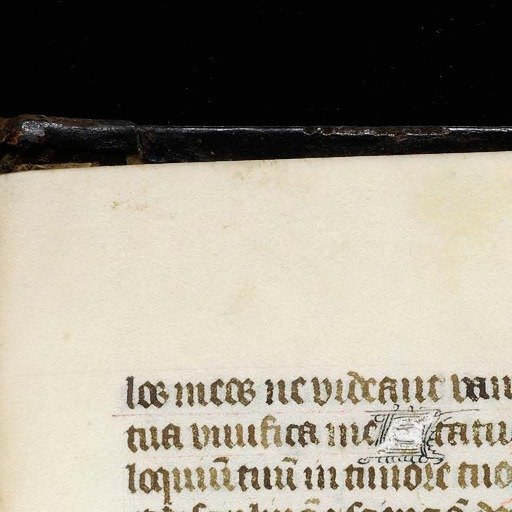 los meos ne videant van
tua viuifica me Statu
loquiū tuū in timore tuo